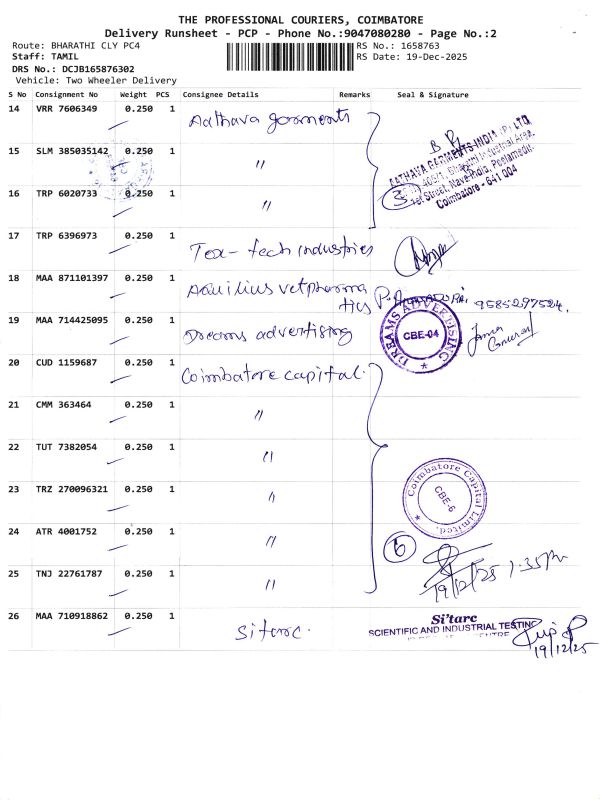 THE PROFESSIONAL COURIERS, COIMBATORE
Delivery Runsheet - PCP - Phone No.:9047080280 - Page No.:2
Route: BHARATHI CLY PC4
RS No.: 1658763
Staff: TAMIL
RS Date: 19-Dec-2025
DRS No.: DCJB165876302
Vehicle: Two Wheeler Delivery
S No Consignment No Weight PCS Consignee Details Remarks Seal & Signature
14 VRR 7606349 0.250 1 Aathava garments
15 SLM 385035142 0.250 1 "
AATHAVA GARMENTS INDIA (P) LTD,
Bharathi Industrial Area,
Street, Nava India, Peelamedu,
Coimbatore - 641 004
3
16 TRP 6020733 0.250 1 "
17 TRP 6396973 0.250 1 Tex-tech industries
18 MAA 871101397 0.250 1 Aquilius vetpharma
9585297524.
19 MAA 714425095 0.250 1 Dreams advertising
DREAMS ADVERTISING
CBE-04
20 CUD 1159687 0.250 1 Coimbatore capital.
21 CMM 363464 0.250 1 "
22 TUT 7382054 0.250 1 "
23 TRZ 270096321 0.250 1 "
Coimbatore Capital Limited.
CBE-6
24 ATR 4001752 0.250 1 "
6
25 TNJ 22761787 0.250 1 "
19/12/25 1:35PM
26 MAA 710918862 0.250 1 Sitarc.
Si'tarc
SCIENTIFIC AND INDUSTRIAL TESTING
19/12/25